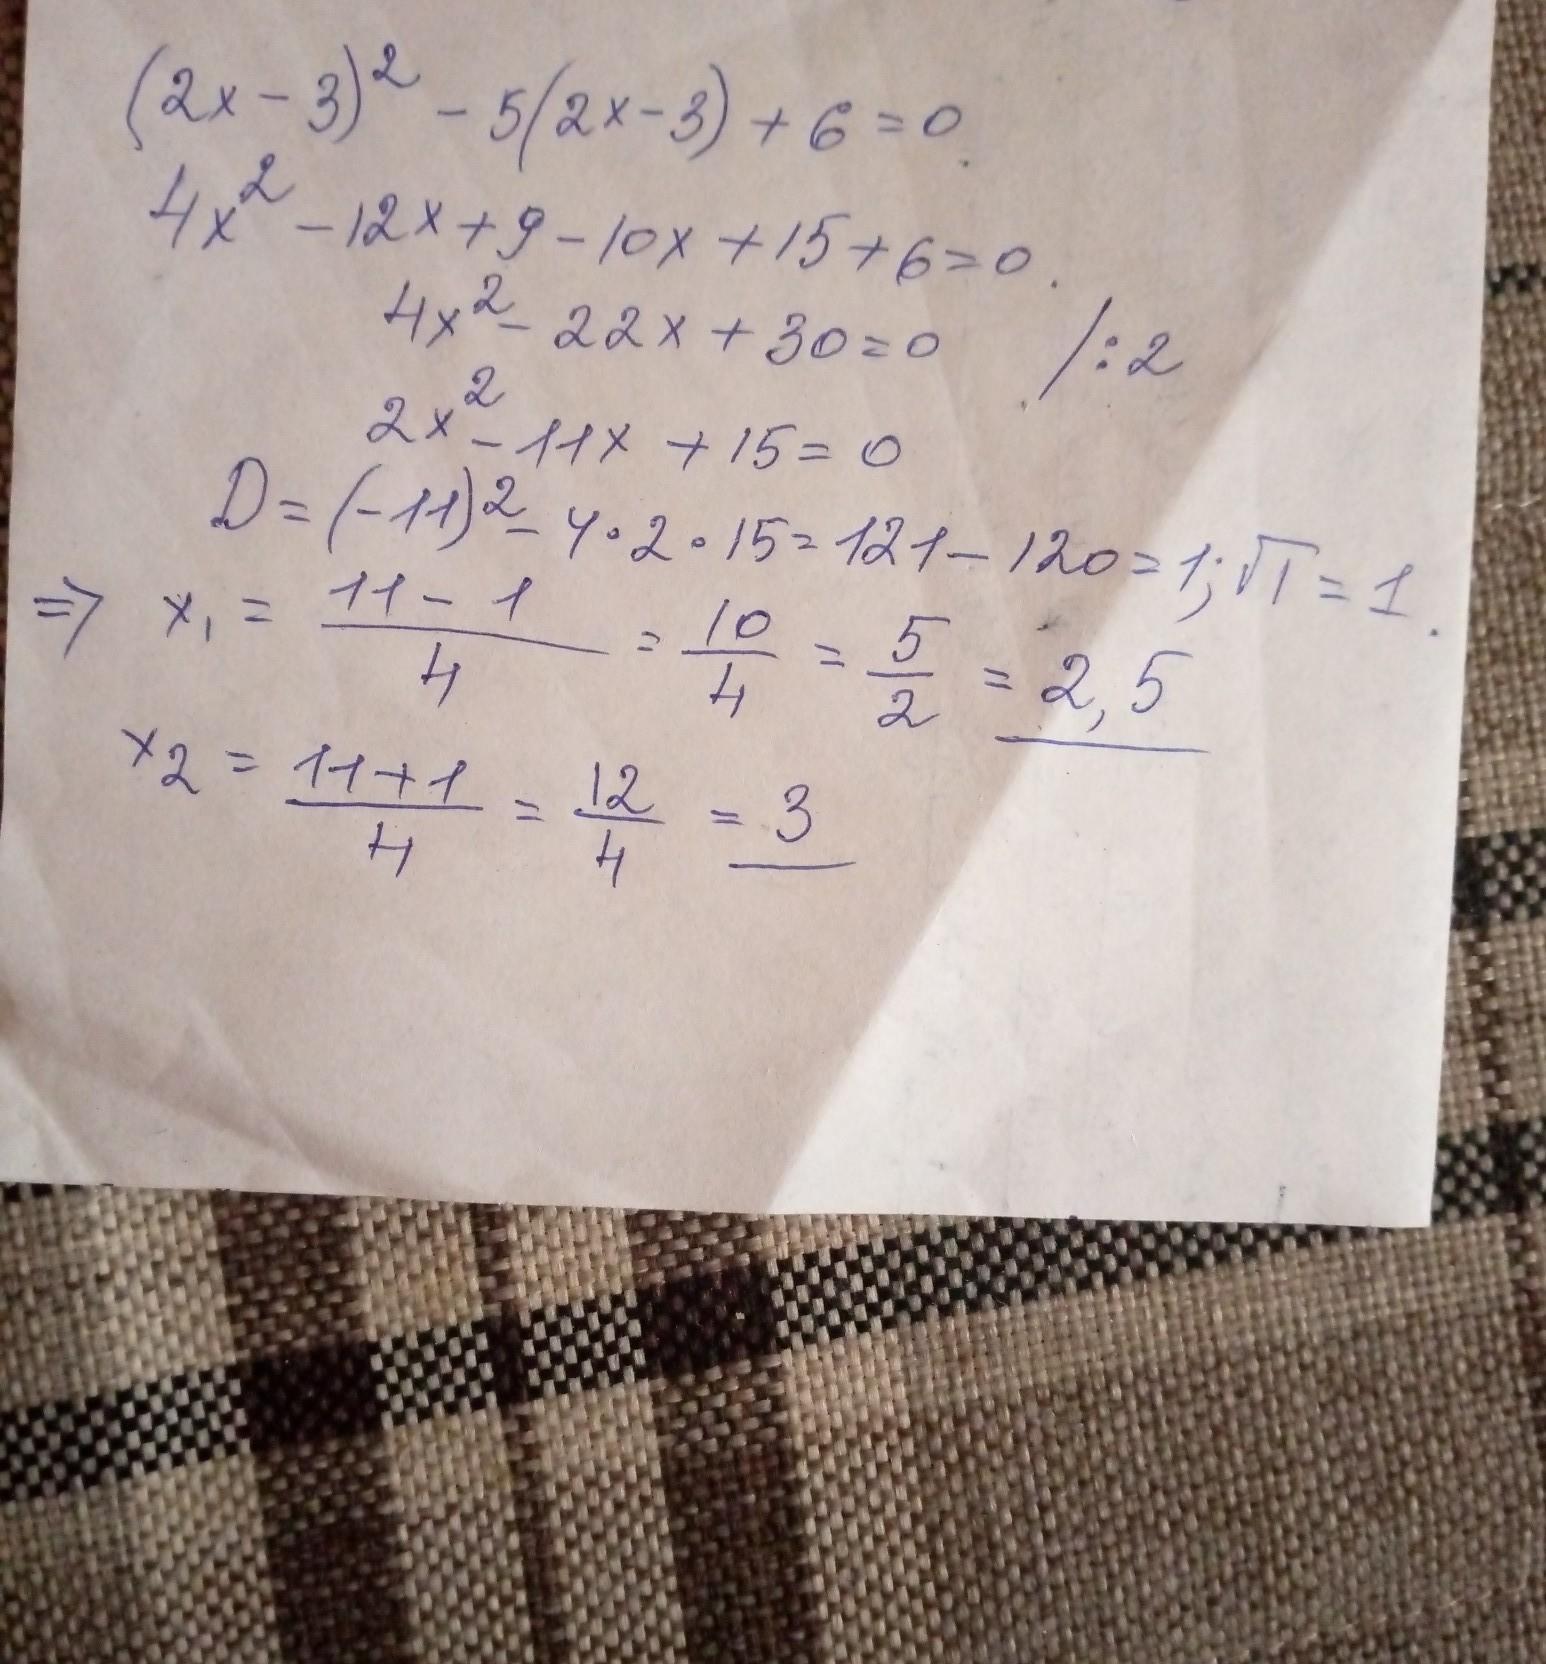 (2x - 3)² - 5(2x - 3) + 6 = 0.
4x² - 12x + 9 - 10x + 15 + 6 = 0.
4x² - 22x + 30 = 0 /:2
2x² - 11x + 15 = 0
D = (-11)² - 4·2·15 = 121 - 120 = 1; √1 = 1.
⇒ x₁ = (11 - 1)/4 = 10/4 = 5/2 = 2,5
x₂ = (11 + 1)/4 = 12/4 = 3